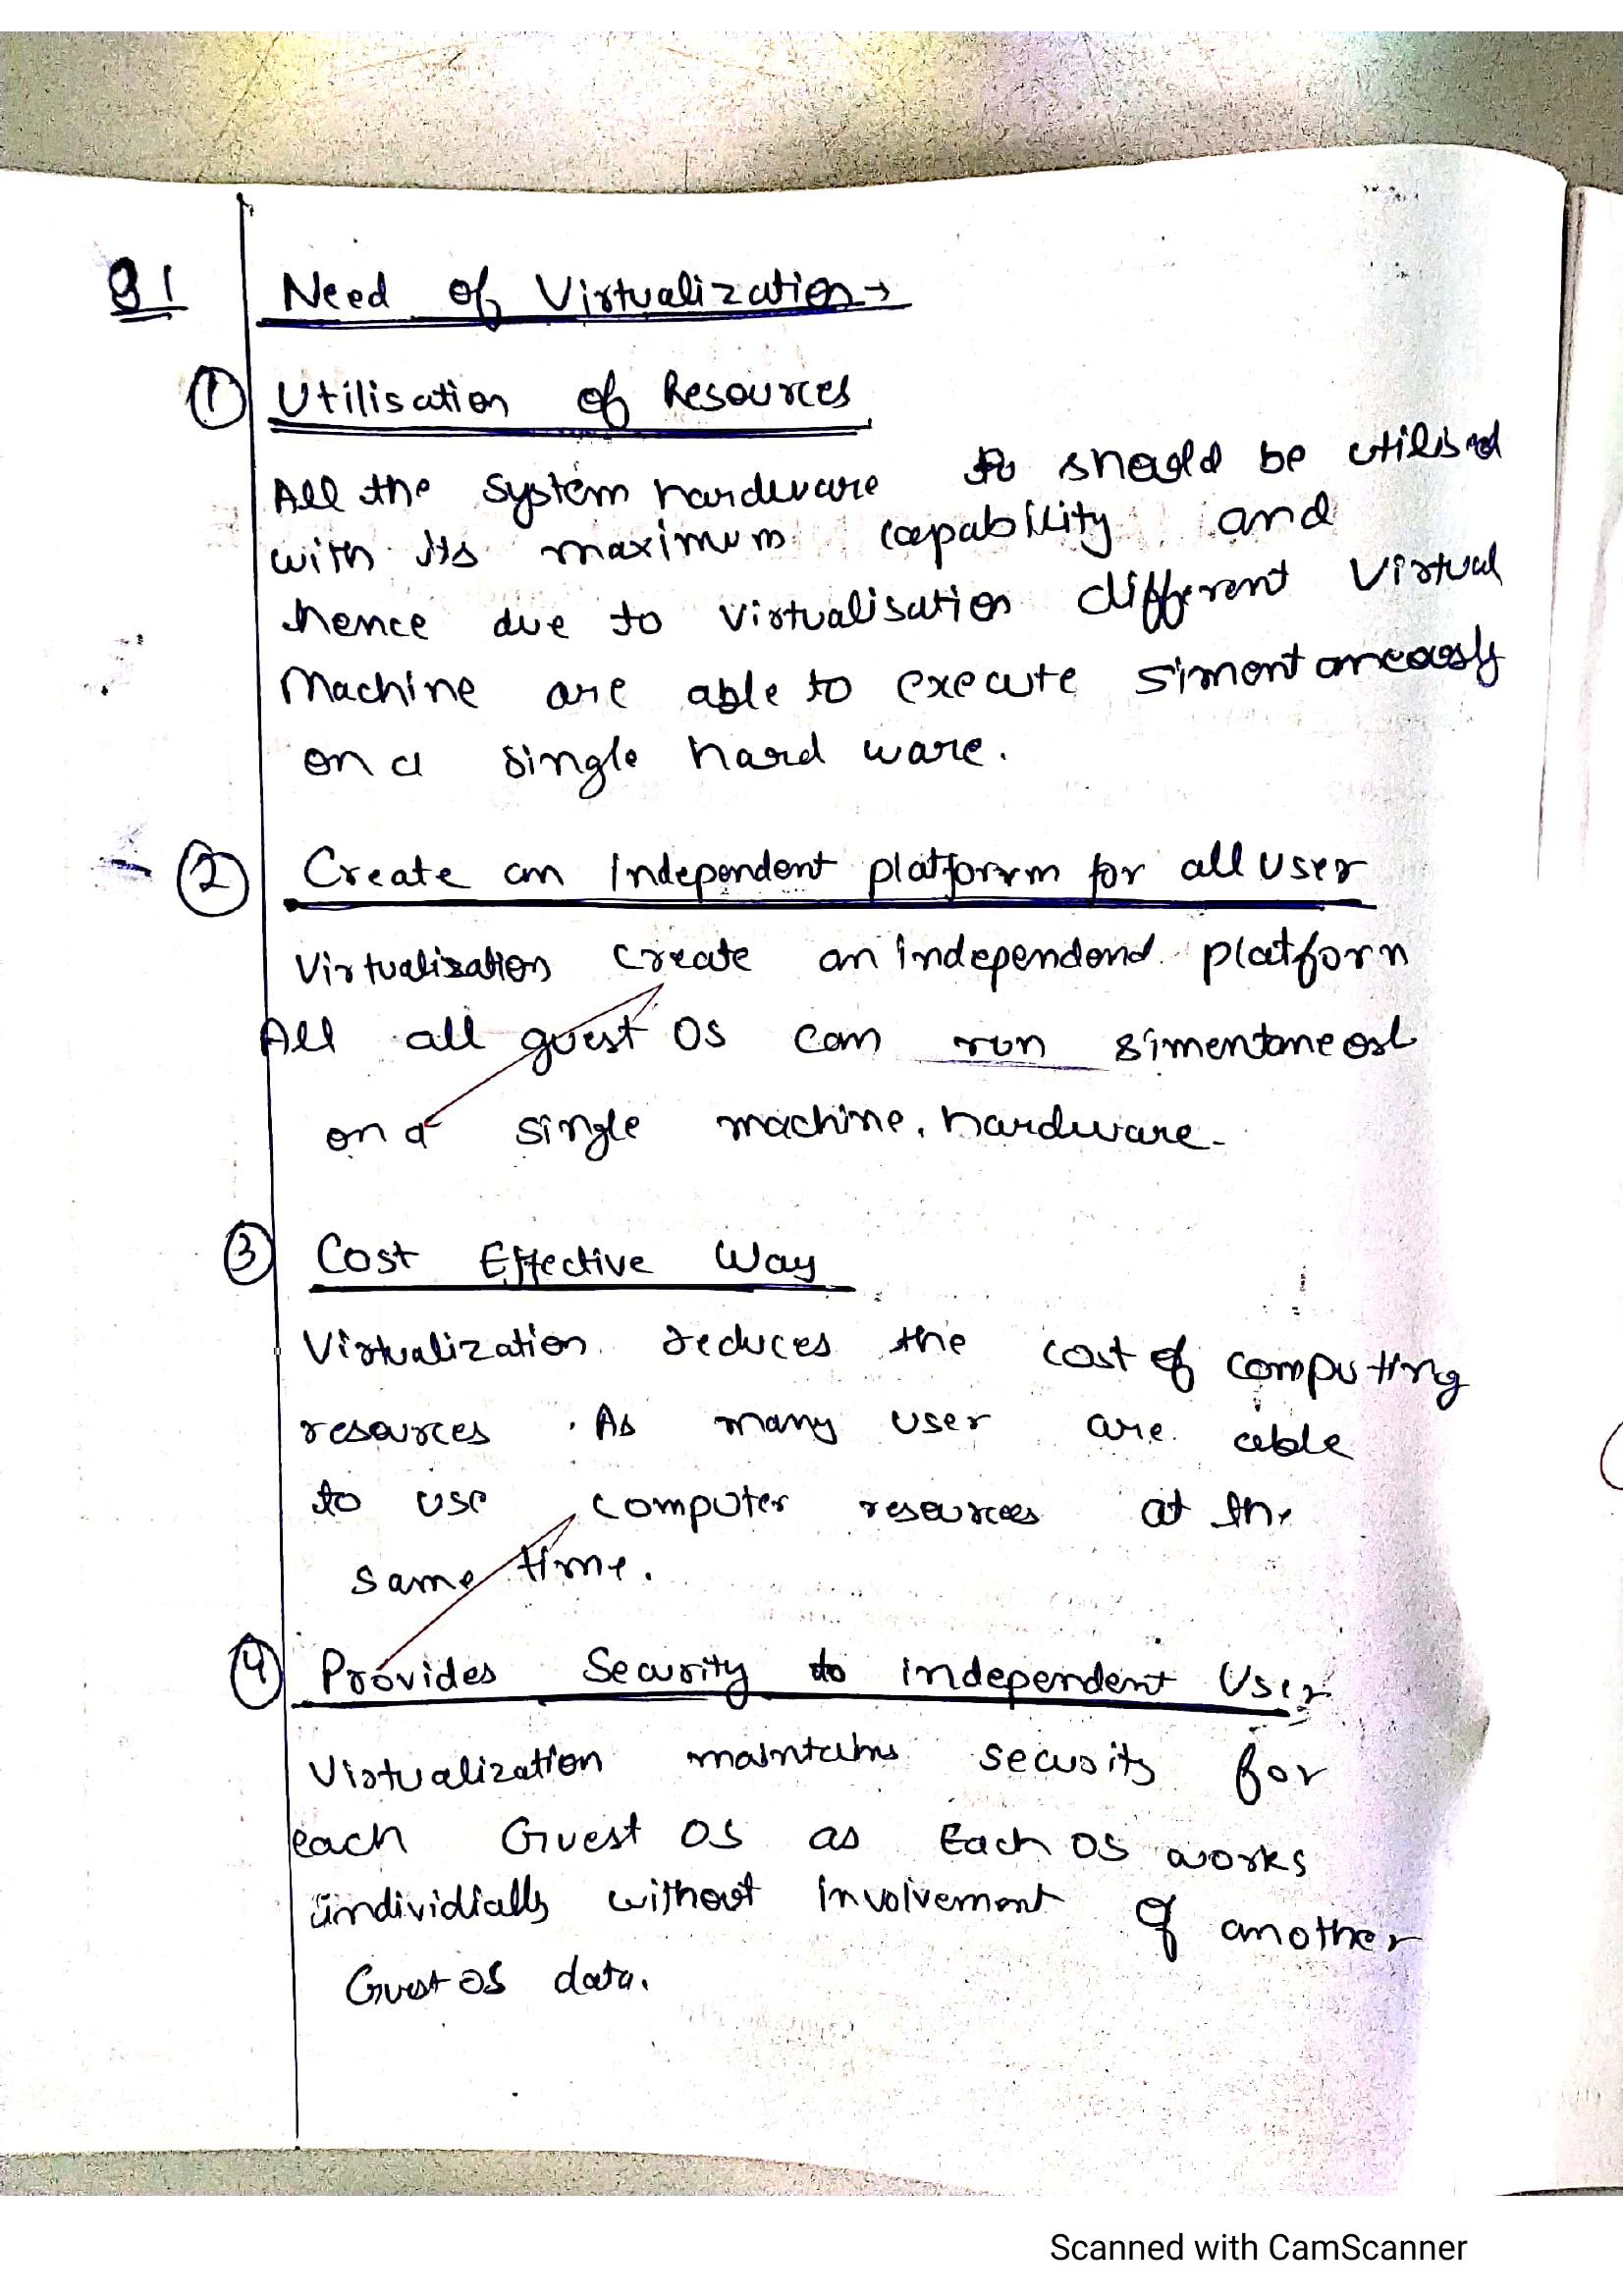 Q1 Need of Virtualization →
① Utilisation of Resources
All the system hardware should be utilised
with its maximum capability and
hence due to virtualisation different Virtual
Machine are able to execute simontaneously
on a single hard ware.
② Create an Independent platform for all user
Virtualisation create an independend platform
All all guest OS can run simentaneosl
on a single machine. hardware.
③ Cost Effective Way
Virtualization reduces the cost of computing
resources. As many user are able
to use computer resources at the
same time.
④ Provides Security to independent User
Virtualization maintains security for
each Guest OS as Each OS works
individially without involvement of another
Guest OS data.
Scanned with CamScanner